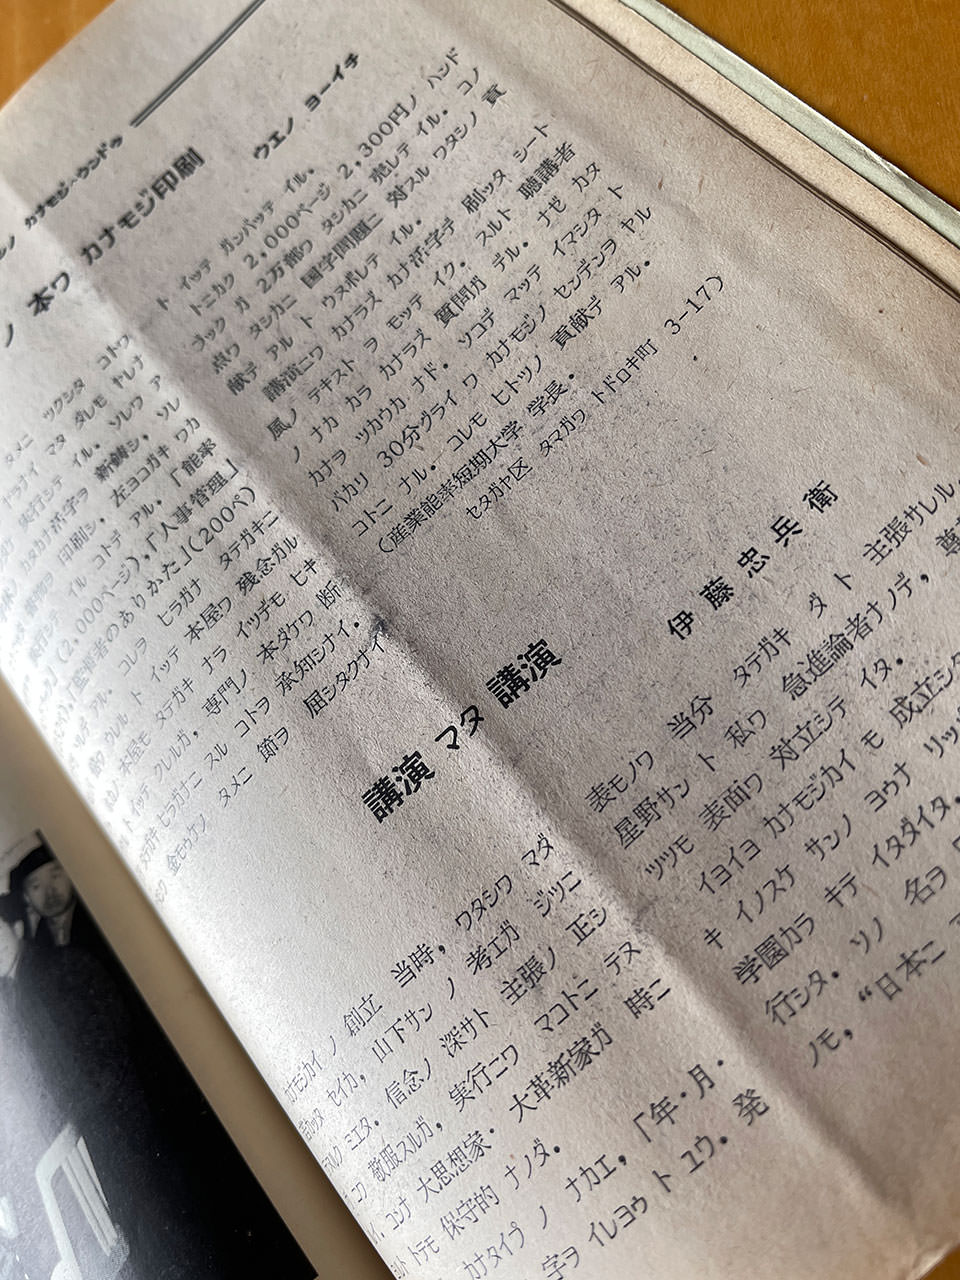 カナモジ・ウンドウ
ノ 本ワ カナモジ印刷
ウエノ ヨーイチ
タメニ ツクシタ コトワ
ナラナイ マタ ダレモ ヤレナ
実行シテ イル。ソレワ ア
カタカナ活字ヲ 新鋳シ，ソレ
印刷シ，左ヨコガキ ワカ
イル コトデ アル。「能率
(2,000ページ)，「人事管理」
監督者のありかた」(200ペ
アル。コレヲ ヒラガナ タテガキニ
ウルル ト イッテ 本屋ワ 残念ガル
本屋モ タテガキ ナラ イツデモ ヒキ
イッテ クレルガ，専門ノ 本ダケワ 断
ヒラガナニ スル コトヲ 承知シナイ。
金モウケノ タメニ 節ヲ 屈シタクナイ
ト イッテ ガンバッテ イル。
トニカク 2,000ページ 2,300円ノ ハンド
ブック ガ 2万部ワ タシカニ 売レテ イル。コノ
点ワ タシカニ 国字問題ニ 対スル ワタシノ 貢
献デ アル ト ウヌボレテ イル。
講演ニワ カナラズ カナ活字デ 刷ッタ シート
風ノ テキスト ヲ モッテ イク。スルト 聴講者
ノ ナカ カラ カナラズ 質問ガ デル。ナゼ カタ
カナヲ ツカウカ ナド。ソコデ マッテ イマシタ ト
バカリ 30分グライ ワ カナモジノ センデンヲ ヤル
コトニ ナル。コレモ ヒトツノ 貢献デ アル。
(産業能率短期大学 学長．
セタガヤ区 タマガワ トドロキ町 3-17)
講演 マタ 講演
伊藤忠兵衛
カナモジカイ ノ 創立 当時，ワタシワ マダ
セイカ，山下サン ノ 考エガ ジツニ
ミエタ。信念ノ 深サト 主張ノ 正シ
敬服スルガ，実行ニワ マコトニ テヌ
コンナ 大思想家・大革新家ガ 時ニ
トテモ 保守的 ナノダ。
カナタイプ ノ ナカエ，「年・月・
字ヲ イレヨウ ト ユウ。発
表モノワ 当分 タテガキ ダ ト 主張サレル。
星野サン ト 私ワ 急進論者ナノデ，尊
ツツモ 表面ワ 対立シテ イタ。
イヨイヨ カナモジカイ モ 成立シタ
キ イノスケ サンノ ヨウナ リッパ
学園カラ キテ イタダイタ。
行シタ。ソノ 名ヲ
ノモ，“日本ニ